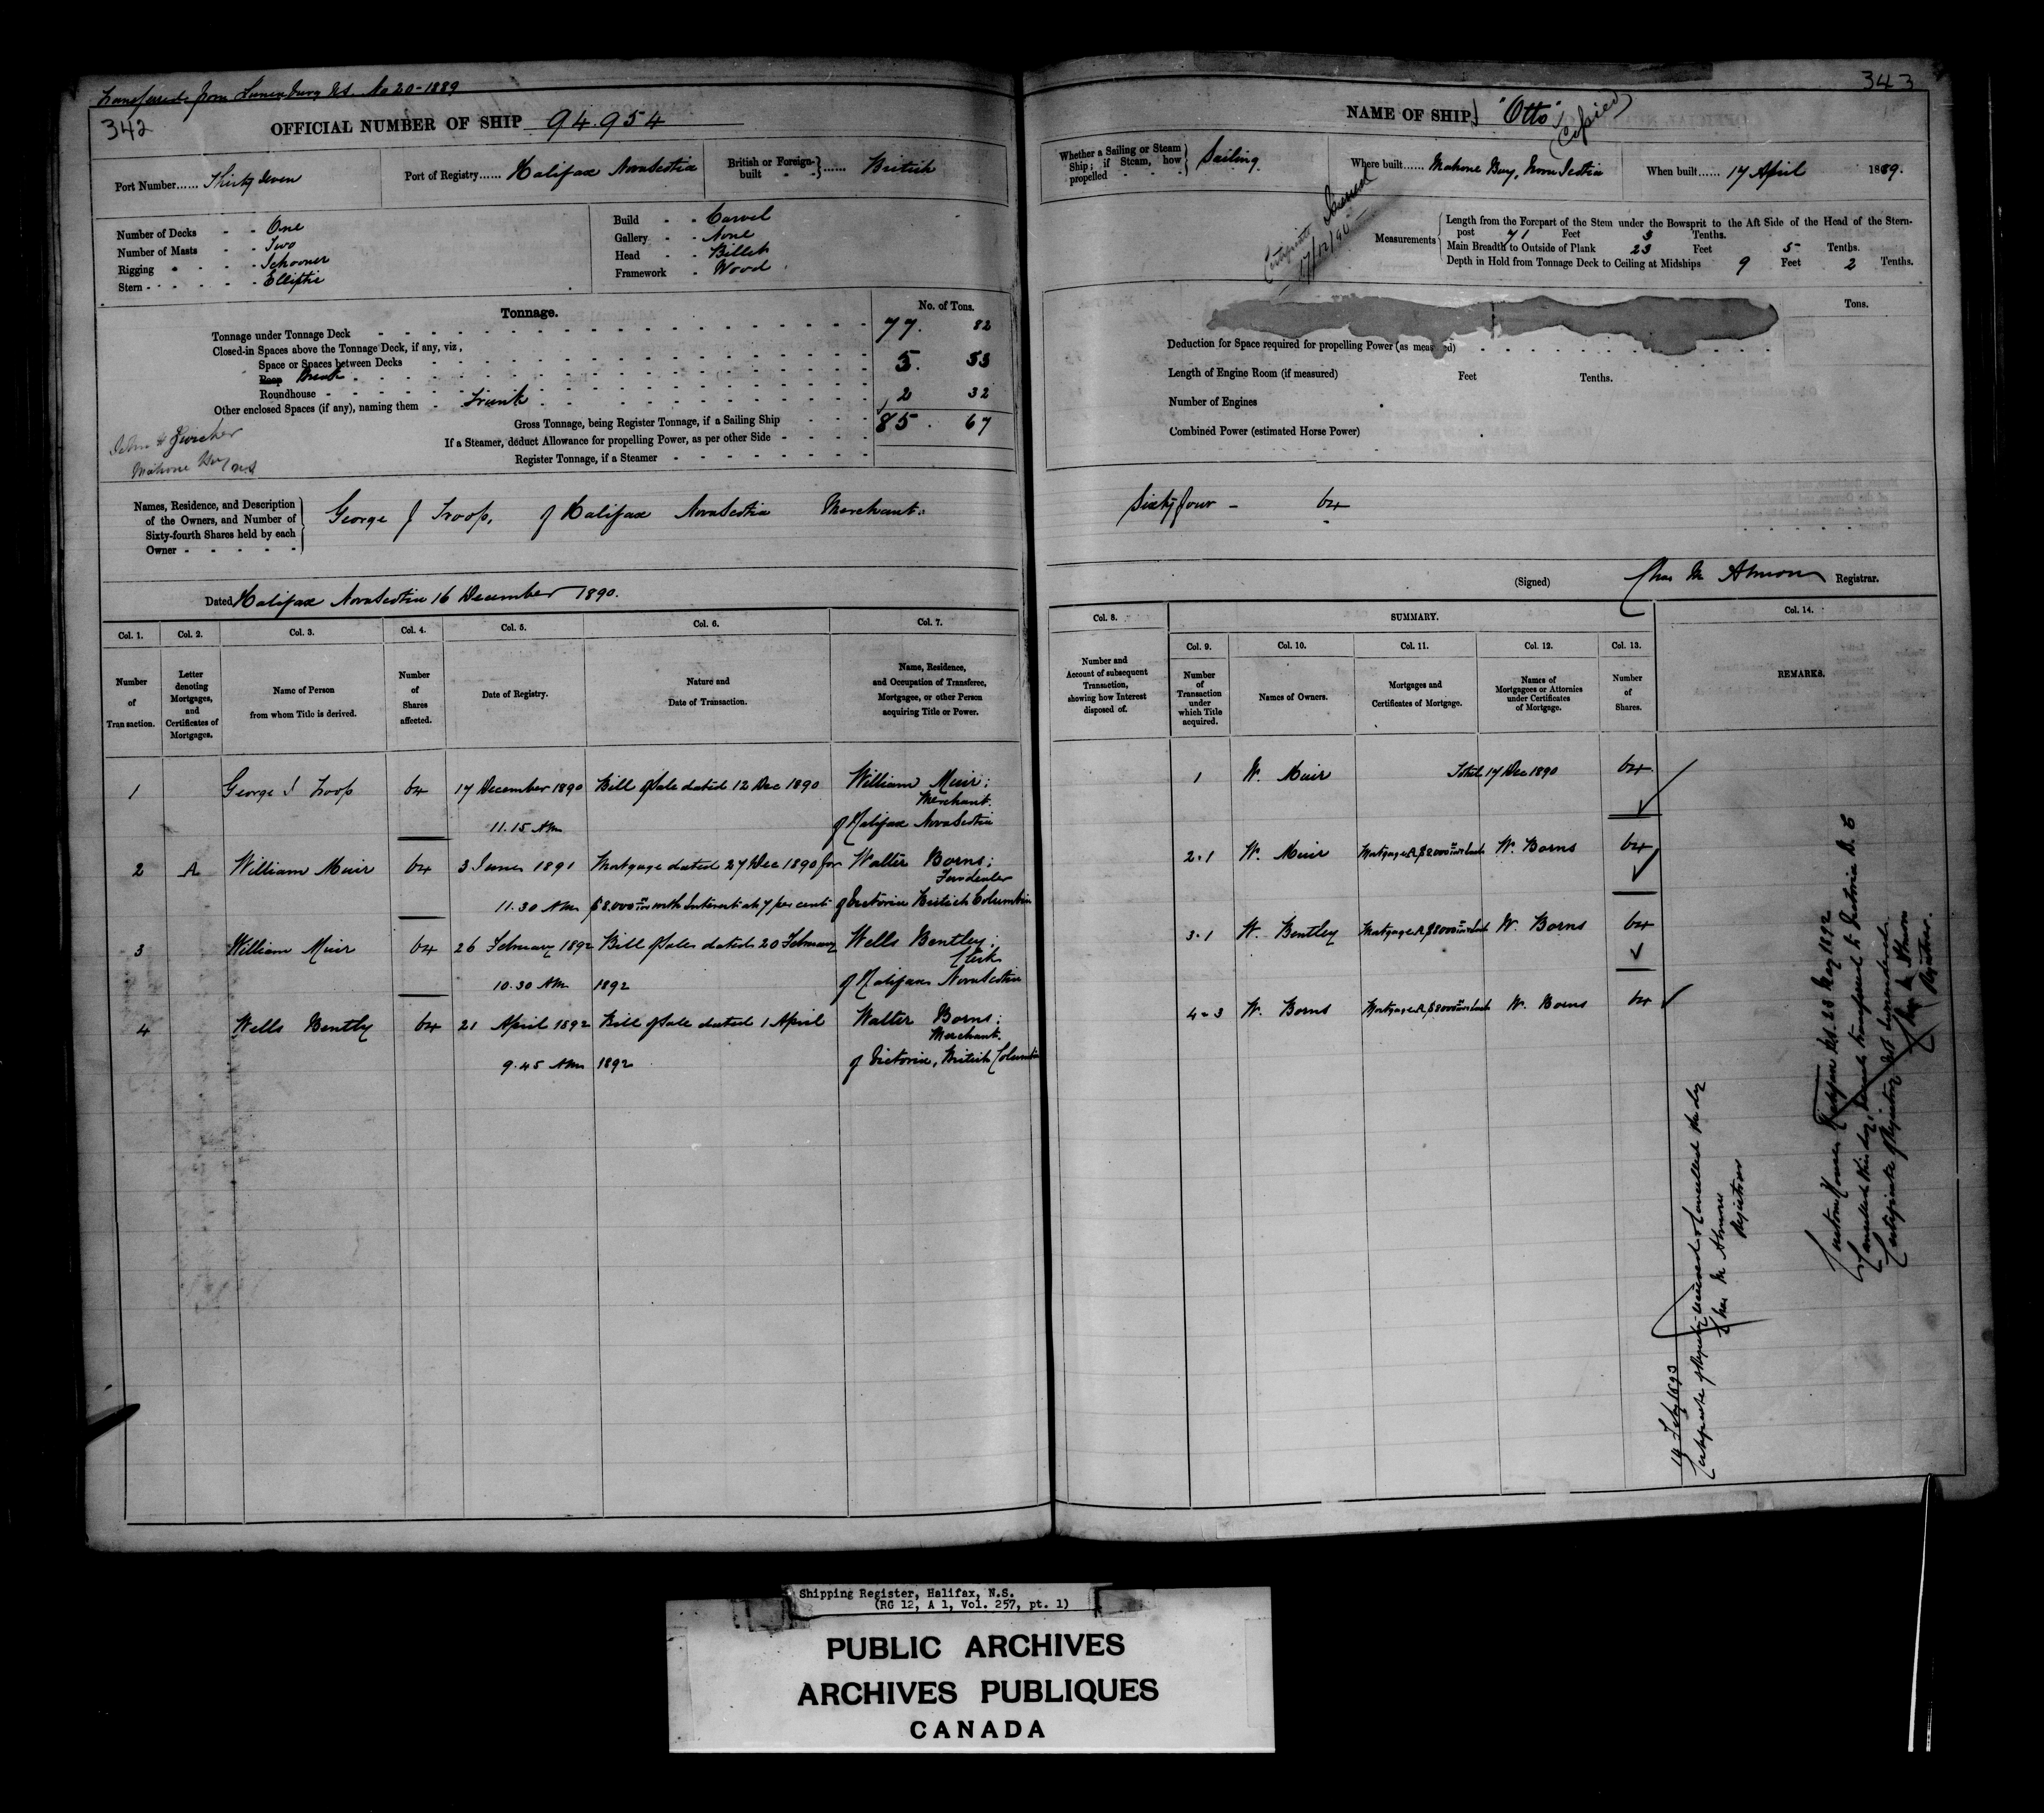 Transferred from Lunenburg N.S. No 20-1889
342
OFFICIAL NUMBER OF SHIP 94.954
Port Number...... Thirty Seven
Port of Registry...... Halifax Nova Scotia
British or Foreign-built - - } ...... British
Number of Decks - - One
Number of Masts - - Two
Rigging - - - - Schooner
Stern - - - - - Elliptic
Build - - Carvel
Gallery - - None
Head - - Billet
Framework - Wood
Tonnage.
No. of Tons.
Tonnage under Tonnage Deck 77. 82
Closed-in Spaces above the Tonnage Deck, if any, viz,
Space or Spaces between Decks
Poop Break 5. 53
Roundhouse
Other enclosed Spaces (if any), naming them - Trunk 2 32
Gross Tonnage, being Register Tonnage, if a Sailing Ship 85. 67
If a Steamer, deduct Allowance for propelling Power, as per other Side
Register Tonnage, if a Steamer
John H Zwicker
Mahone Bay NS
Names, Residence, and Description
of the Owners, and Number of
Sixty-fourth Shares held by each
Owner
George J Troop, of Halifax Nova Scotia Merchant.
Dated Halifax Nova Scotia 16 December 1890.
Col. 1. Col. 2. Col. 3. Col. 4. Col. 5. Col. 6. Col. 7.
Number of Transaction.
Letter denoting Mortgages, and Certificates of Mortgages.
Name of Person from whom Title is derived.
Number of Shares affected.
Date of Registry.
Nature and Date of Transaction.
Name, Residence, and Occupation of Transferee, Mortgagee, or other Person acquiring Title or Power.
1 George J Troop 64 17 December 1890 Bill of Sale dated 12 Dec 1890 William Muir;
Merchant.
11.15 AM of Halifax Nova Scotia
2 A William Muir 64 3 June 1891 Mortgage dated 27 Dec 1890 for Walter Borns;
11.30 AM $8.000 with Interest at 7 per cent of Victoria British Columbia
3 William Muir 64 26 February 1892 Bill of Sale dated 20 February Wells Bentley;
Clerk
10.30 AM 1892 of Halifax Nova Scotia
4 Wells Bently 64 21 April 1892 Bill of Sale dated 1 April Walter Borns;
Merchant.
9.45 AM 1892 of Victoria, British Columbia
343
NAME OF SHIP "Otto"
Copied
Whether a Sailing or Steam Ship; if Steam, how propelled - - - } Sailing
Where built...... Mahone Bay, Nova Scotia
When built...... 17 April 1889.
Certificate Issued
17/12/90
Measurements
Length from the Forepart of the Stem under the Bowsprit to the Aft Side of the Head of the Stern-
post 71 Feet 3 Tenths.
Main Breadth to Outside of Plank 23 Feet 5 Tenths.
Depth in Hold from Tonnage Deck to Ceiling at Midships 9 Feet 2 Tenths.
Tons.
Deduction for Space required for propelling Power (as measured)
Length of Engine Room (if measured) Feet Tenths.
Number of Engines
Combined Power (estimated Horse Power)
Sixty four - 64
(Signed) Chas M Almon Registrar.
Col. 8. SUMMARY. Col. 14.
Col. 9. Col. 10. Col. 11. Col. 12. Col. 13.
Number and Account of subsequent Transaction, showing how Interest disposed of.
Number of Transaction under which Title acquired.
Names of Owners.
Mortgages and Certificates of Mortgage.
Names of Mortgagees or Attornies under Certificates of Mortgage.
Number of Shares.
REMARKS.
1 W. Muir Total 17 Dec 1890 64
2.1 W. Muir Mortgage A $8000 W. Borns 64
3.1 W. Bentley Mortgage A $8000 W. Borns 64
4-3 W. Borns Mortgage A $8000 W. Borns 64
14 Feby 1893
Certificate of Registry received & Cancelled this day
Chas M Almon
Registrar
Custom House Halifax N.S. 23 May 1892
Cancelled this day, transferred to Victoria B.C
Certificate of Registry not surrendered.
Chas M Almon
Registrar.
Shipping Register, Halifax, N.S.
(RG 12, A 1, Vol. 257, pt. 1)
PUBLIC ARCHIVES
ARCHIVES PUBLIQUES
CANADA